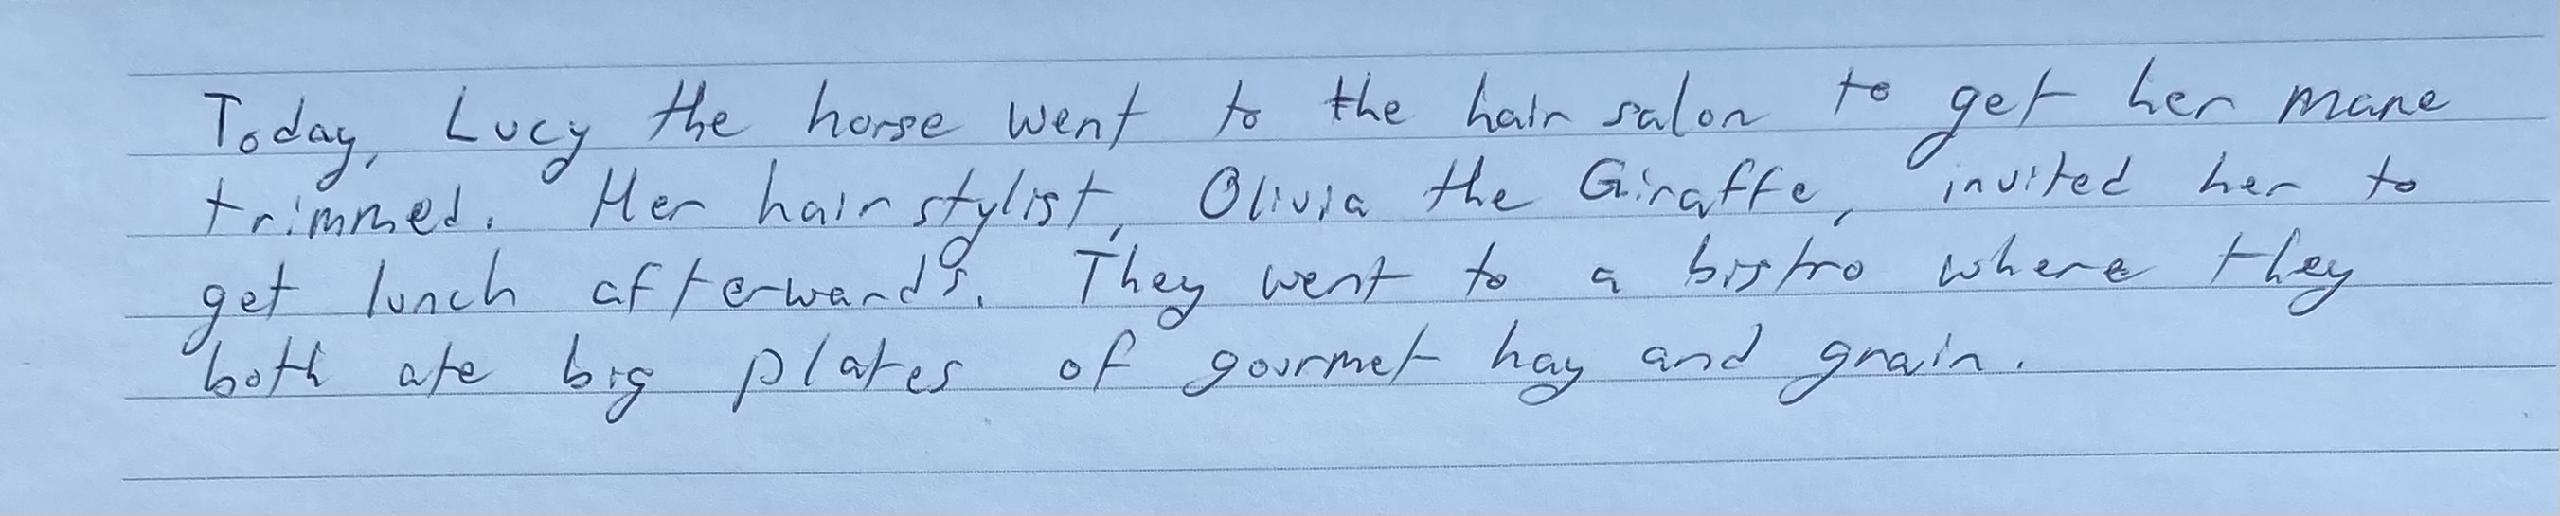 Today, Lucy the horse went to the hair salon to get her mane
trimmed. Her hair stylist, Olivia the Giraffe, invited her to
get lunch afterwards. They went to a bistro where they
both ate big plates of gourmet hay and grain.